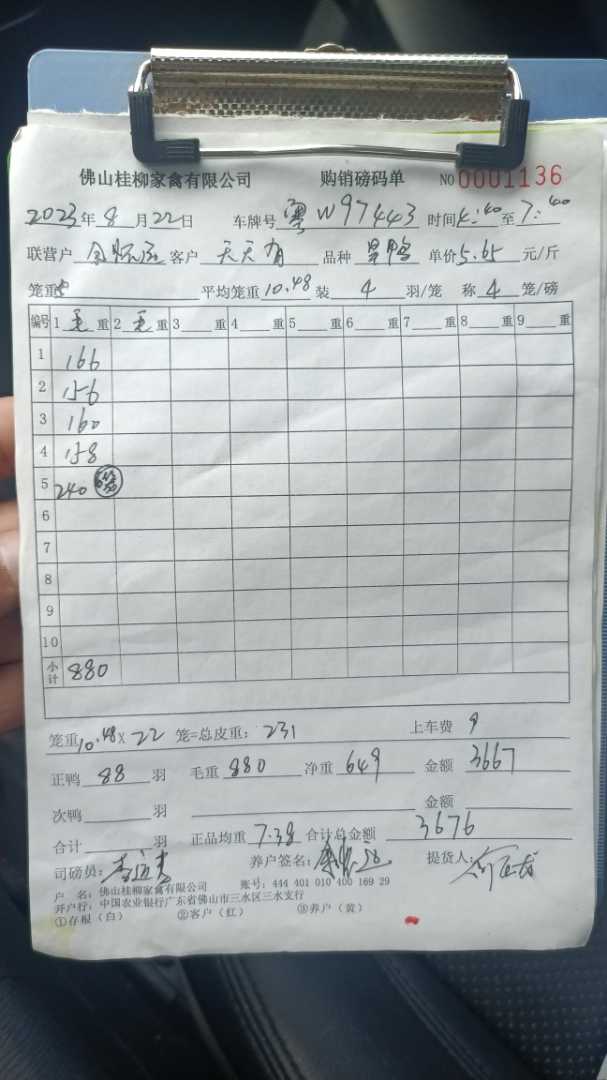 佛山桂柳家禽有限公司 购销磅码单 NO 0001136
2023年8月22日 车牌号 粤W97443 时间4:40至7:40
联营户 客户 天天有 品种 单价5.65元/斤
笼重 平均笼重10.48装4羽/笼 称4笼/磅
编号 1毛重 2毛重 3重 4重 5重 6重 7重 8重 9重
1 166
2 156
3 160
4 158
5 240
6
7
8
9
10
小计 880
笼重10.48×22笼=总皮重:231 上车费 9
正鸭88羽 毛重880 净重649 金额3667
次鸭 羽 金额
合计 羽 正品均重7.38 合计总金额3676
司磅员: 养户签名: 提货人:
户 名:佛山桂柳家禽有限公司 账号:444 401 010 400 169 29
开户行:中国农业银行广东省佛山市三水区三水支行
①存根(白) ②客户(红) ③养户(黄)